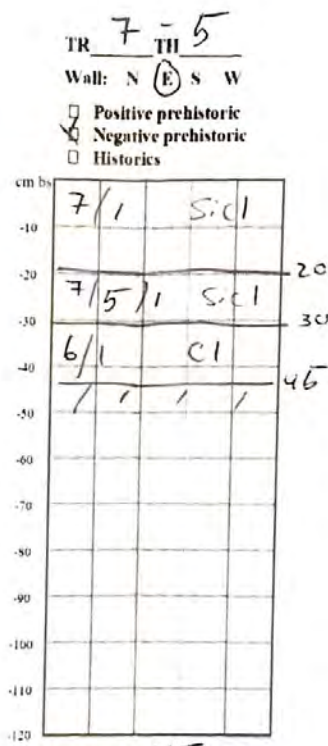 TR 7 - TH 5
Wall: N E S W
Positive prehistoric
Negative prehistoric
Historics
cm bs
7/1 Sicl
-10
-20 20
7/5/1 Sicl
-30 30
6/1 Cl
-40
45
-50
-60
-70
-80
-90
-100
-110
-120